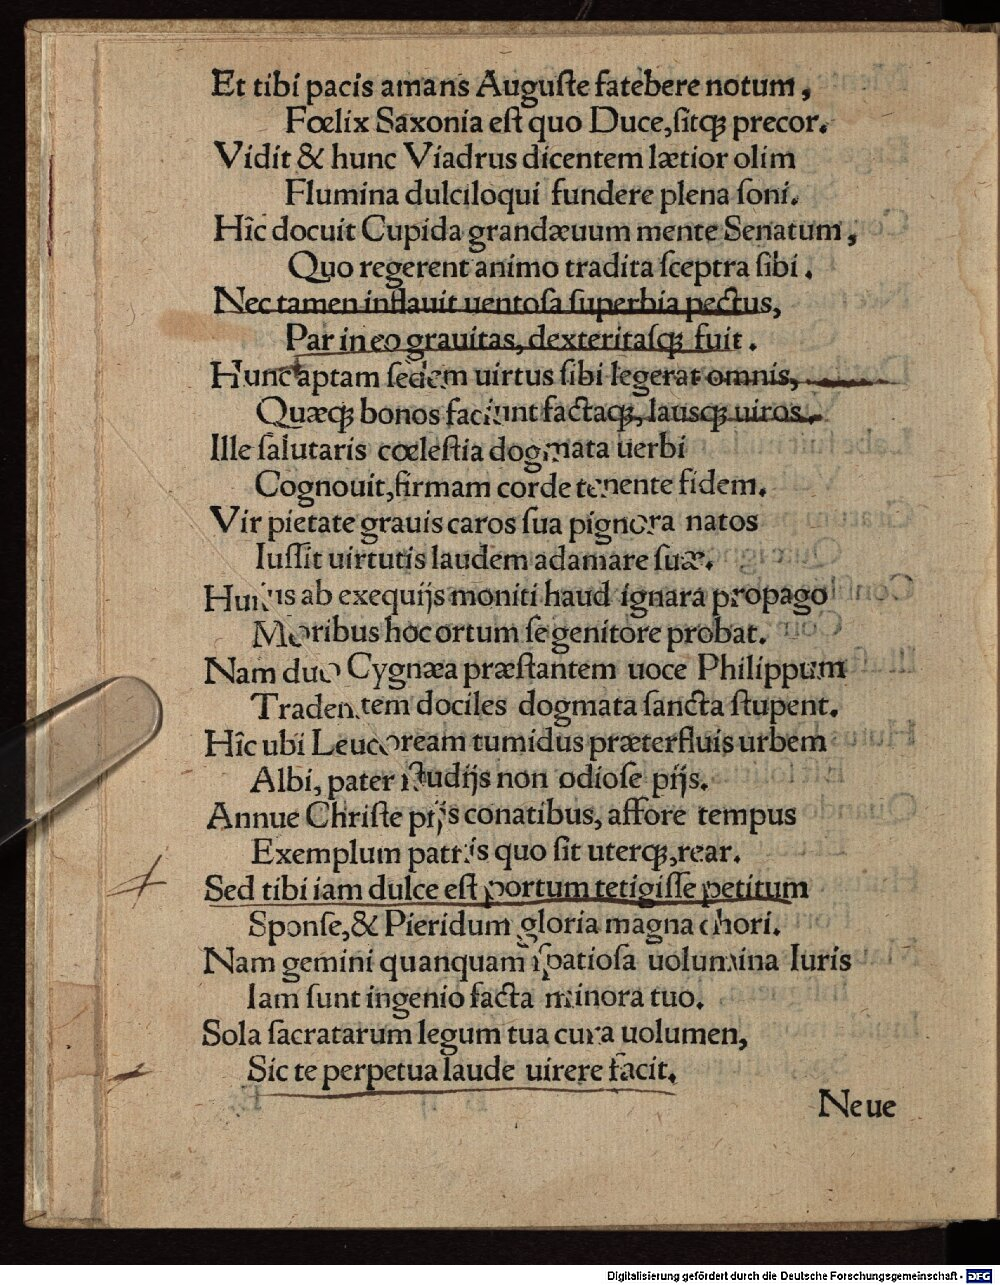 Et tibi pacis amans Auguſte fatebere notum,
Fœlix Saxonia eſt quo Duce, ſitq́ꝫ precor.
Vidit & hunc Viadrus dicentem lætior olim
Flumina dulciloqui fundere plena ſoni.
Hîc docuit Cupida grandæuum mente Senatum,
Quo regerent animo tradita ſceptra ſibi.
Nec tamen inflauit uentoſa ſuperbia pectus,
Par in eo grauitas, dexteritaſqꝫ fuit.
Hunc aptam ſedem uirtus ſibi legerat omnis,
Quæqꝫ bonos faciunt factaqꝫ, lausqꝫ uiros.
Ille ſalutaris cœleſtia dogmata uerbi
Cognouit, firmam corde tenente fidem.
Vir pietate grauis caros ſua pignora natos
Iuſſit uirtutis laudem adamare ſuæ.
Huius ab exequijs moniti haud ignara propago
Moribus hoc ortum ſe genitore probat.
Nam duo Cygnæa præſtantem uoce Philippum
Tradentem dociles dogmata ſancta ſtupent.
Hîc ubi Leucoream tumidus præterfluis urbem
Albi, pater ſtudijs non odioſe pijs.
Annue Chriſte pijs conatibus, affore tempus
Exemplum patris quo ſit uterqꝫ, rear.
Sed tibi iam dulce eſt portum tetigiſſe petitum
Sponſe, & Pieridum gloria magna chori.
Nam gemini quanquam ſpatioſa uolumina Iuris
Iam ſunt ingenio facta minora tuo.
Sola ſacratarum legum tua cura uolumen,
Sic te perpetua laude uirere facit.
Neue
Digitalisierung gefördert durch die Deutsche Forschungsgemeinschaft - DFG